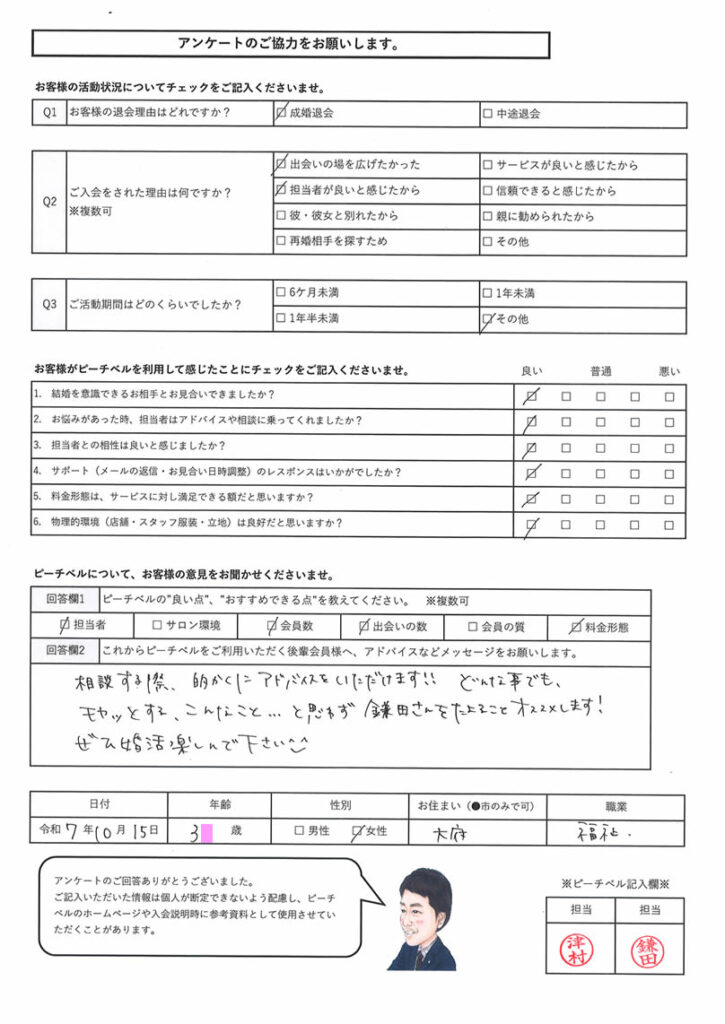 アンケートのご協力をお願いします。
お客様の活動状況についてチェックをご記入くださいませ。
Q1 お客様の退会理由はどれですか？ ☑成婚退会 □中途退会
Q2 ご入会をされた理由は何ですか？ ※複数可
☑出会いの場を広げたかった □サービスが良いと感じたから
☑担当者が良いと感じたから □信頼できると感じたから
□彼・彼女と別れたから □親に勧められたから
□再婚相手を探すため □その他
Q3 ご活動期間はどのくらいでしたか？
□6ケ月未満 □1年未満
□1年半未満 ☑その他
お客様がピーチベルを利用して感じたことにチェックをご記入くださいませ。 良い 普通 悪い
1. 結婚を意識できるお相手とお見合いできましたか？ ☑ □ □ □ □
2. お悩みがあった時、担当者はアドバイスや相談に乗ってくれましたか？ ☑ □ □ □ □
3. 担当者との相性は良いと感じましたか？ ☑ □ □ □ □
4. サポート（メールの返信・お見合い日時調整）のレスポンスはいかがでしたか？ ☑ □ □ □ □
5. 料金形態は、サービスに対し満足できる額だと思いますか？ ☑ □ □ □ □
6. 物理的環境（店舗・スタッフ服装・立地）は良好だと思いますか？ ☑ □ □ □ □
ピーチベルについて、お客様の意見をお聞かせくださいませ。
回答欄1 ピーチベルの"良い点"、"おすすめできる点"を教えてください。 ※複数可
☑担当者 □サロン環境 ☑会員数 ☑出会いの数 □会員の質 ☑料金形態
回答欄2 これからピーチベルをご利用いただく後輩会員様へ、アドバイスなどメッセージをお願いします。
相談する際、的かくにアドバイスをいただけます!! どんな事でも、
モヤッとする、こんなこと…と思わず鎌田さんをたよることオススメします!
ぜひ婚活楽しんで下さい
日付 年齢 性別 お住まい（●市のみで可） 職業
令和7年10月15日 3 歳 □男性 ☑女性 大府 福祉.
アンケートのご回答ありがとうございました。
ご記入いただいた情報は個人が断定できないよう配慮し、ピーチ
ベルのホームページや入会説明時に参考資料として使用させてい
ただくことがあります。
※ピーチベル記入欄※
担当 担当
津村 鎌田